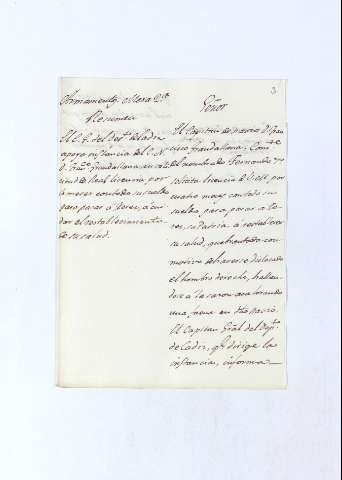 3
Armamentos Mesa 2.ª
Resumen
El C. G. del Dep.to de Cadiz
apoya instancia del C. N.
D. Fran.co Grandallana en
de Real licencia por
4 meses con todo su sueldo
para pasar a Jerez, a cui-
dar el restablecimiento
de su salud.
Señor
El Capitan de navio D. Fran-
cisco Grandallana, Com.te
del navio de Fernando 7.º
solicita licencia de V. M. por
cuatro meses con todo su
sueldo para pasar a Je-
rez, su patria, a restablecer
su salud, quebrantada con
motivo de haverse dislocado
el hombro derecho, hallan-
dose a la sazon
una faena en dho navio.
El Capitan Gral del Dep.to
de Cadiz, q.e dirige la
instancia, informa